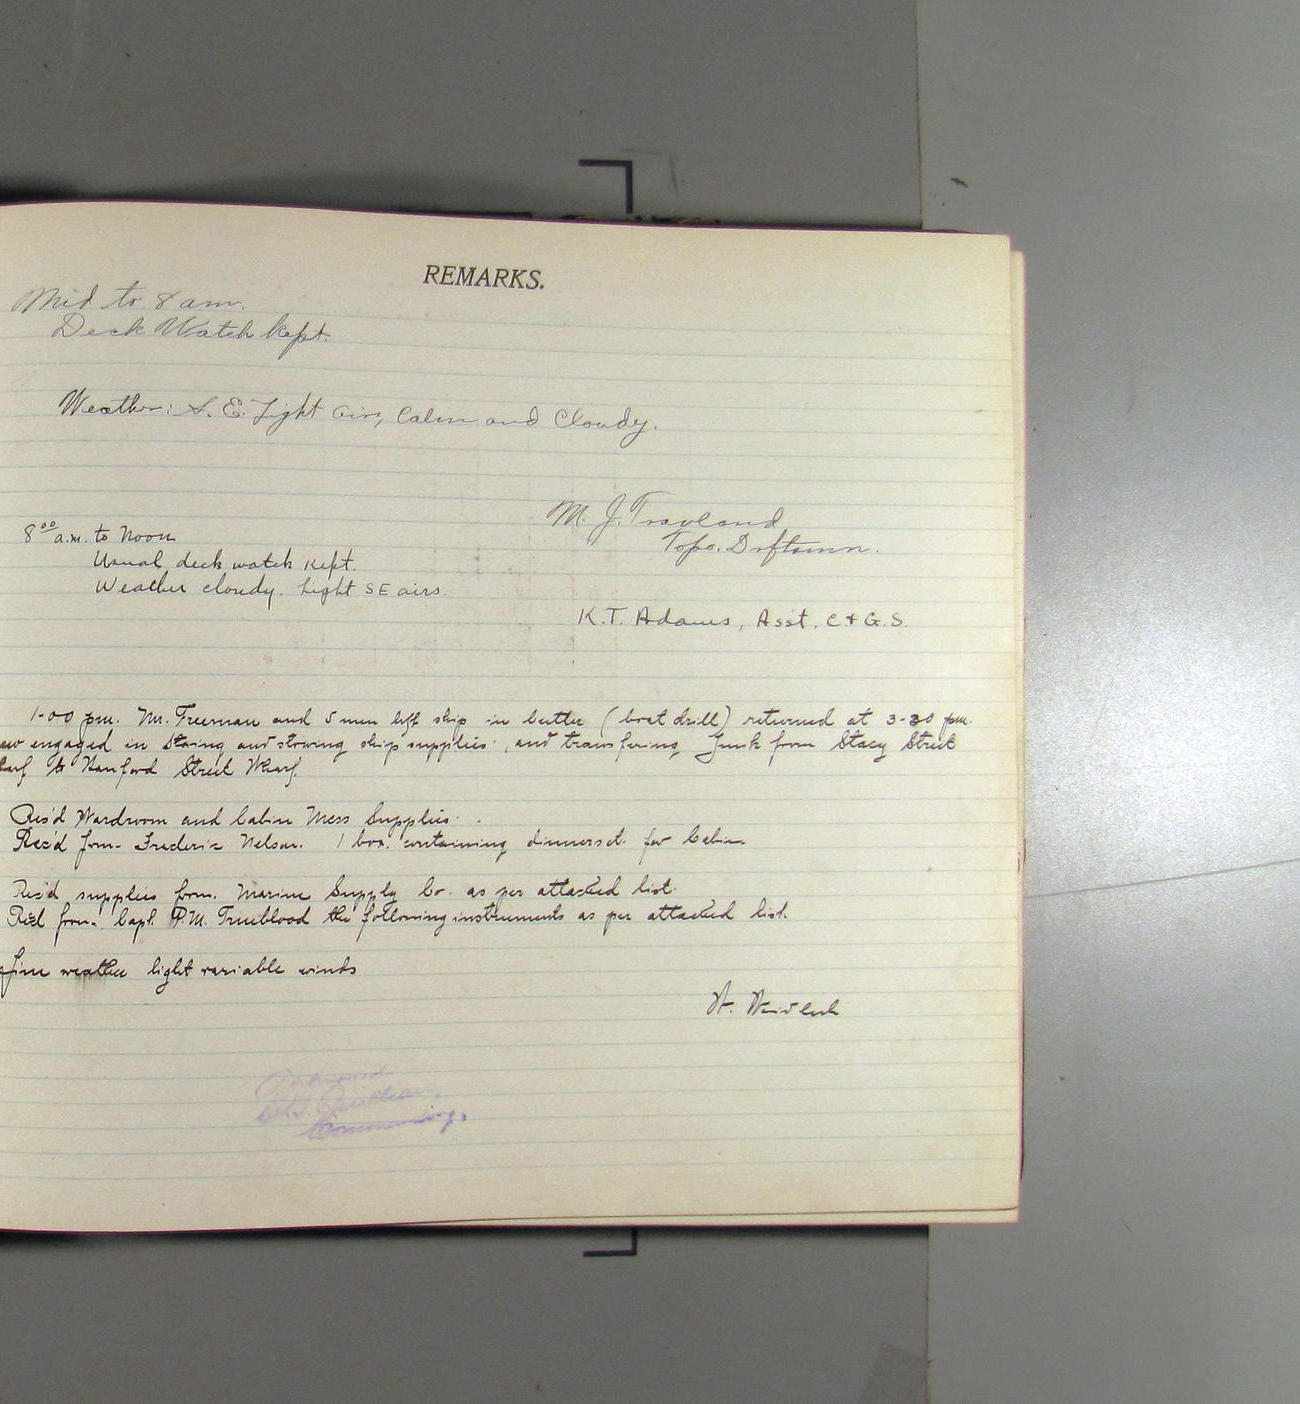 REMARKS.
Mid to 8 am.
Deck Watch kept.
Weather: S. E. Light airs, Calm and Cloudy.
M. J. Travland
Topo. Dftsmn.
8⁰⁰ a.m. to Noon
Usual deck watch kept.
Weather cloudy. Light SE airs.
K.T. Adams, Asst. C & G.S.
1-00 pm. Mr. Freeman and 5 men left ship in cutter (boat drill) returned at 3-30 pm.
engaged in and stowing ship supplies, and transfering junk from Stacy Street
to Hanford Street Wharf.
Rec'd Wardroom and Cabin Mess Supplies.
Rec'd from Frederic Nelson. 1 box. containing dinnerset for Cabin.
Rec'd supplies from. Marine Supply Co. as per attached list.
Rec'd from Capt. P.M. Trueblood the following instruments as per attached list.
fine weather light variable winds
Commanding.